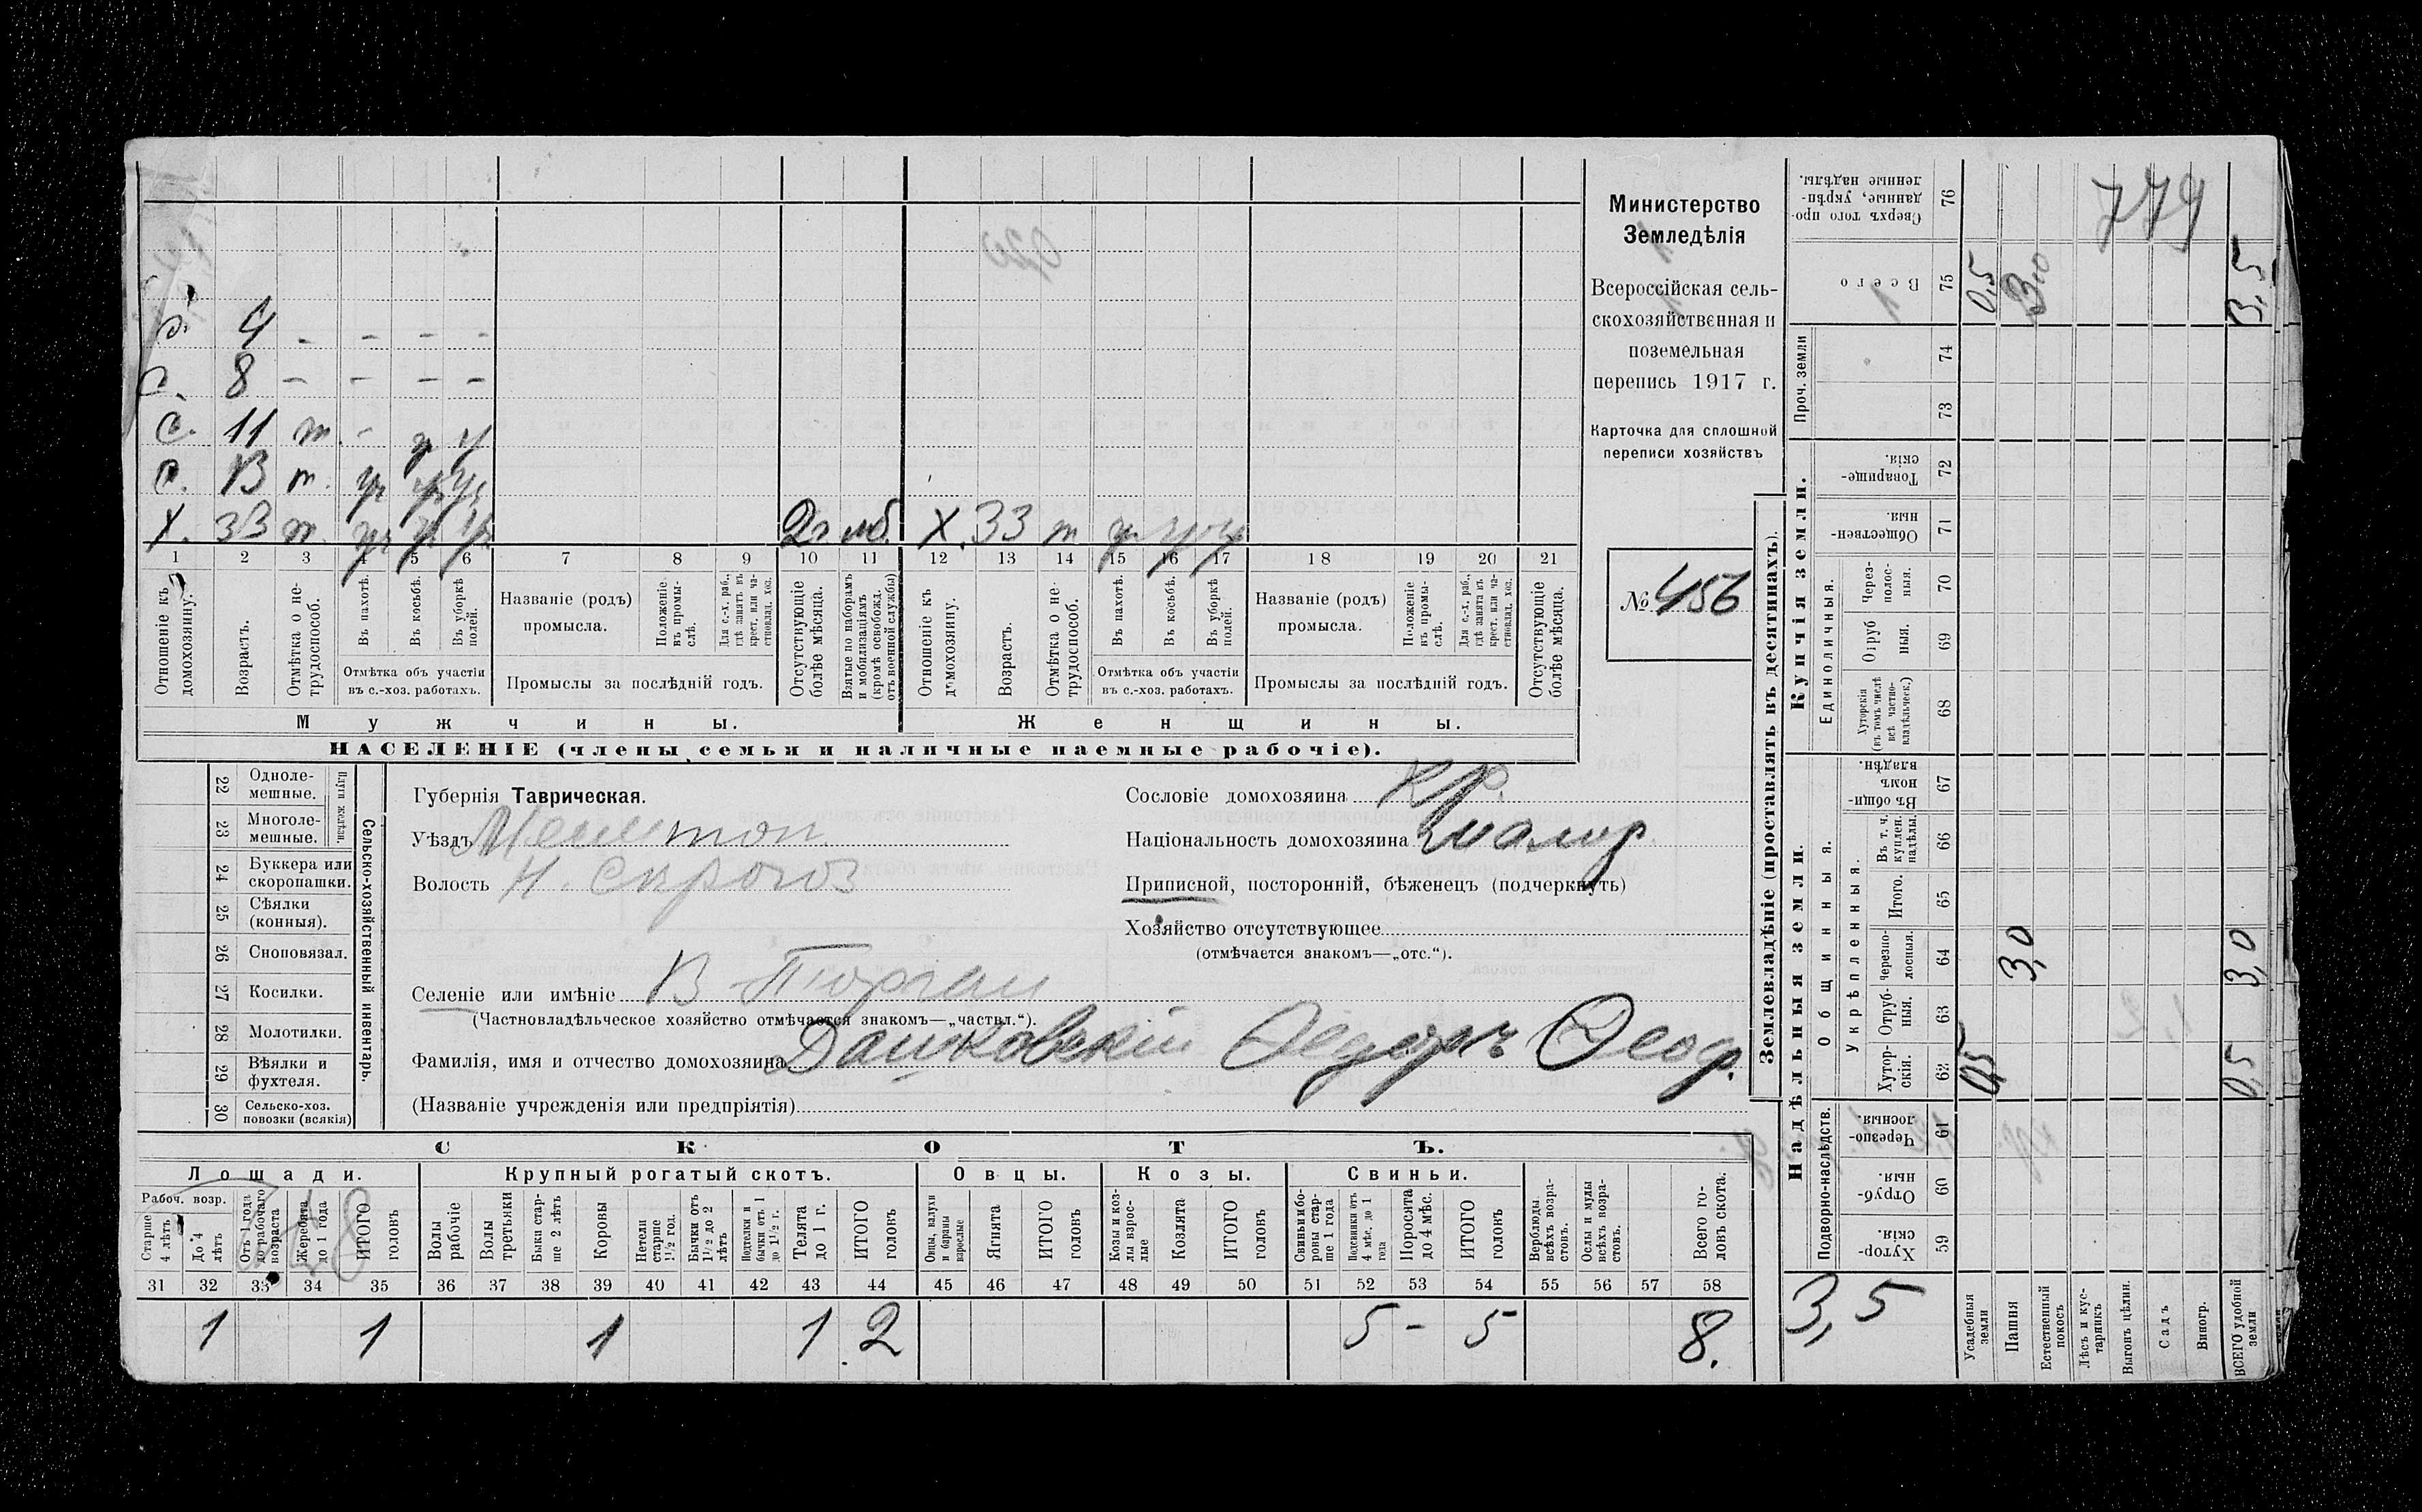 с. 4 - - - -
с. 8 - - - -
с. 11 т. -
с. 13 т.
Х. 33 т. 2 г моб. Х. 33 т
1 2 3 4 5 6 7 8 9 10 11 12 13 14 15 16 17 18 19 20 21
Отношеніе къ домохозяину.
Возрастъ.
Отмѣтка о не-
трудоспособ.
Въ пахотѣ.
Въ косьбѣ.
Въ уборкѣ
полей.
Отмѣтка объ участіи
въ с.-хоз. работахъ.
Названіе (родъ)
промысла.
Положеніе
въ промы-
слѣ.
Для с.-х. раб.,
гдѣ занятъ въ
крест. или ча-
стновлад. хоз.
Промыслы за послѣдній годъ.
Отсутствующіе
болѣе мѣсяца.
Взятые по наборамъ
и мобилизаціямъ
(кромѣ освобожд.
отъ военной службы)
Отношеніе къ
домохозяину.
Возрастъ.
Отмѣтка о не-
трудоспособ.
Въ пахотѣ.
Въ косьбѣ.
Въ уборкѣ
полей.
Отмѣтка объ участіи
въ с.-хоз. работахъ.
Названіе (родъ)
промысла.
Положеніе
въ промы-
слѣ.
Для с.-х. раб.,
гдѣ занята въ
крест. или ча-
стновлад. хоз.
Промыслы за послѣдній годъ.
Отсутствующіе
болѣе мѣсяца.
Мужчины.
Женщины.
НАСЕЛЕНІЕ (члены семьи и наличные наемные рабочіе).
Министерство
Земледѣлія
Всероссійская сель-
скохозяйственная и
поземельная
перепись 1917 г.
Карточка для сплошной
переписи хозяйствъ
№ 456
22 Одноле-
мешные.
23 Многоле-
мешные.
Плуги желѣзн.
24 Буккера или
скоропашки.
25 Сѣялки
(конныя).
26 Сноповязал.
27 Косилки.
28 Молотилки.
29 Вѣялки и
фухтеля.
30 Сельско-хоз.
повозки (всякія)
Сельско-хозяйственный инвентарь.
Губернія Таврическая.
Уѣздъ Мелитоп
Волость Н. Сѣрогоз
Селеніе или имѣніе В Торгаи
(Частновладѣльческое хозяйство отмѣчается знакомъ—„частвл.“).
Фамилія, имя и отчество домохозяина Дашковскій Ѳедоръ Ѳеод.
(Названіе учрежденія или предпріятія)
Сословіе домохозяина Кр.
Національность домохозяина малор.
Приписной, посторонній, бѣженецъ (подчеркнуть)
Хозяйство отсутствующее
(отмѣчается знакомъ—„отс.“).
СКОТЪ.
Лошади.
Рабоч. возр.
Старше
4 лѣтъ
До 4
лѣтъ
Отъ 1 года
до рабочаго
возраста
Жеребята
до 1 года
ИТОГО
головъ
Крупный рогатый скотъ.
Волы
рабочіе
Волы
третьяки
Быки стар-
ше 2 лѣтъ
Коровы
Нетели
старше
1½ год.
Бычки отъ
1½ до 2
лѣтъ
Подтелки и
бычки отъ 1
до 1½ г.
Телята
до 1 г.
ИТОГО
головъ
Овцы.
Овцы, валухи
и бараны
взрослые
Ягнята
ИТОГО
головъ
Козы.
Козы и коз-
лы взрос-
лые
Козлята
ИТОГО
головъ
Свиньи.
Свиньи и бо-
роны стар-
ше 1 года
Подсвинки отъ
4 мѣс. до 1
года
Поросята
до 4 мѣс.
ИТОГО
головъ
Верблюды
всѣхъ возра-
стовъ.
Ослы и мулы
всѣхъ возра-
стовъ.
Всего го-
ловъ скота.
31 32 33 34 35 36 37 38 39 40 41 42 43 44 45 46 47 48 49 50 51 52 53 54 55 56 57 58
1 1 1 1 2 5 - 5 8.
Землевладѣніе (проставлять въ десятинахъ).
Купчія земли.
Надѣльныя земли.
Сверхъ того про-
данные, укрѣп-
ленные надѣлы.
76
779
Всего
75 0,5 3,0 3,5
Проч. земли
74
73
Товарище-
скія.
72
Обществен-
ныя.
71
Единоличныя.
Через-
полос-
ныя.
70
Отруб
ныя.
69
Хуторскія
(въ томъ числѣ
всѣ частно-
владѣльческ.)
68
Общинныя.
Въ общин-
номъ
владѣн.
67
Укрѣпленныя.
Въ т. ч.
куплен.
надѣлы.
66
Итого.
65
Черезпо-
лосныя.
64 3,0 3,0
Отруб-
ныя.
63
Хутор-
скія.
62 0,5 0,5
Подворно-наслѣдств.
Черезпо-
лосныя
61
Отруб-
ныя.
60
Хутор-
скія.
59
3,5
Усадебныя
земли
Пашня
Естественный
покосъ
Лѣсъ и кус-
тарникъ
Выгонъ цѣлин.
Садъ
Виногр.
ВСЕГО удобной
земли